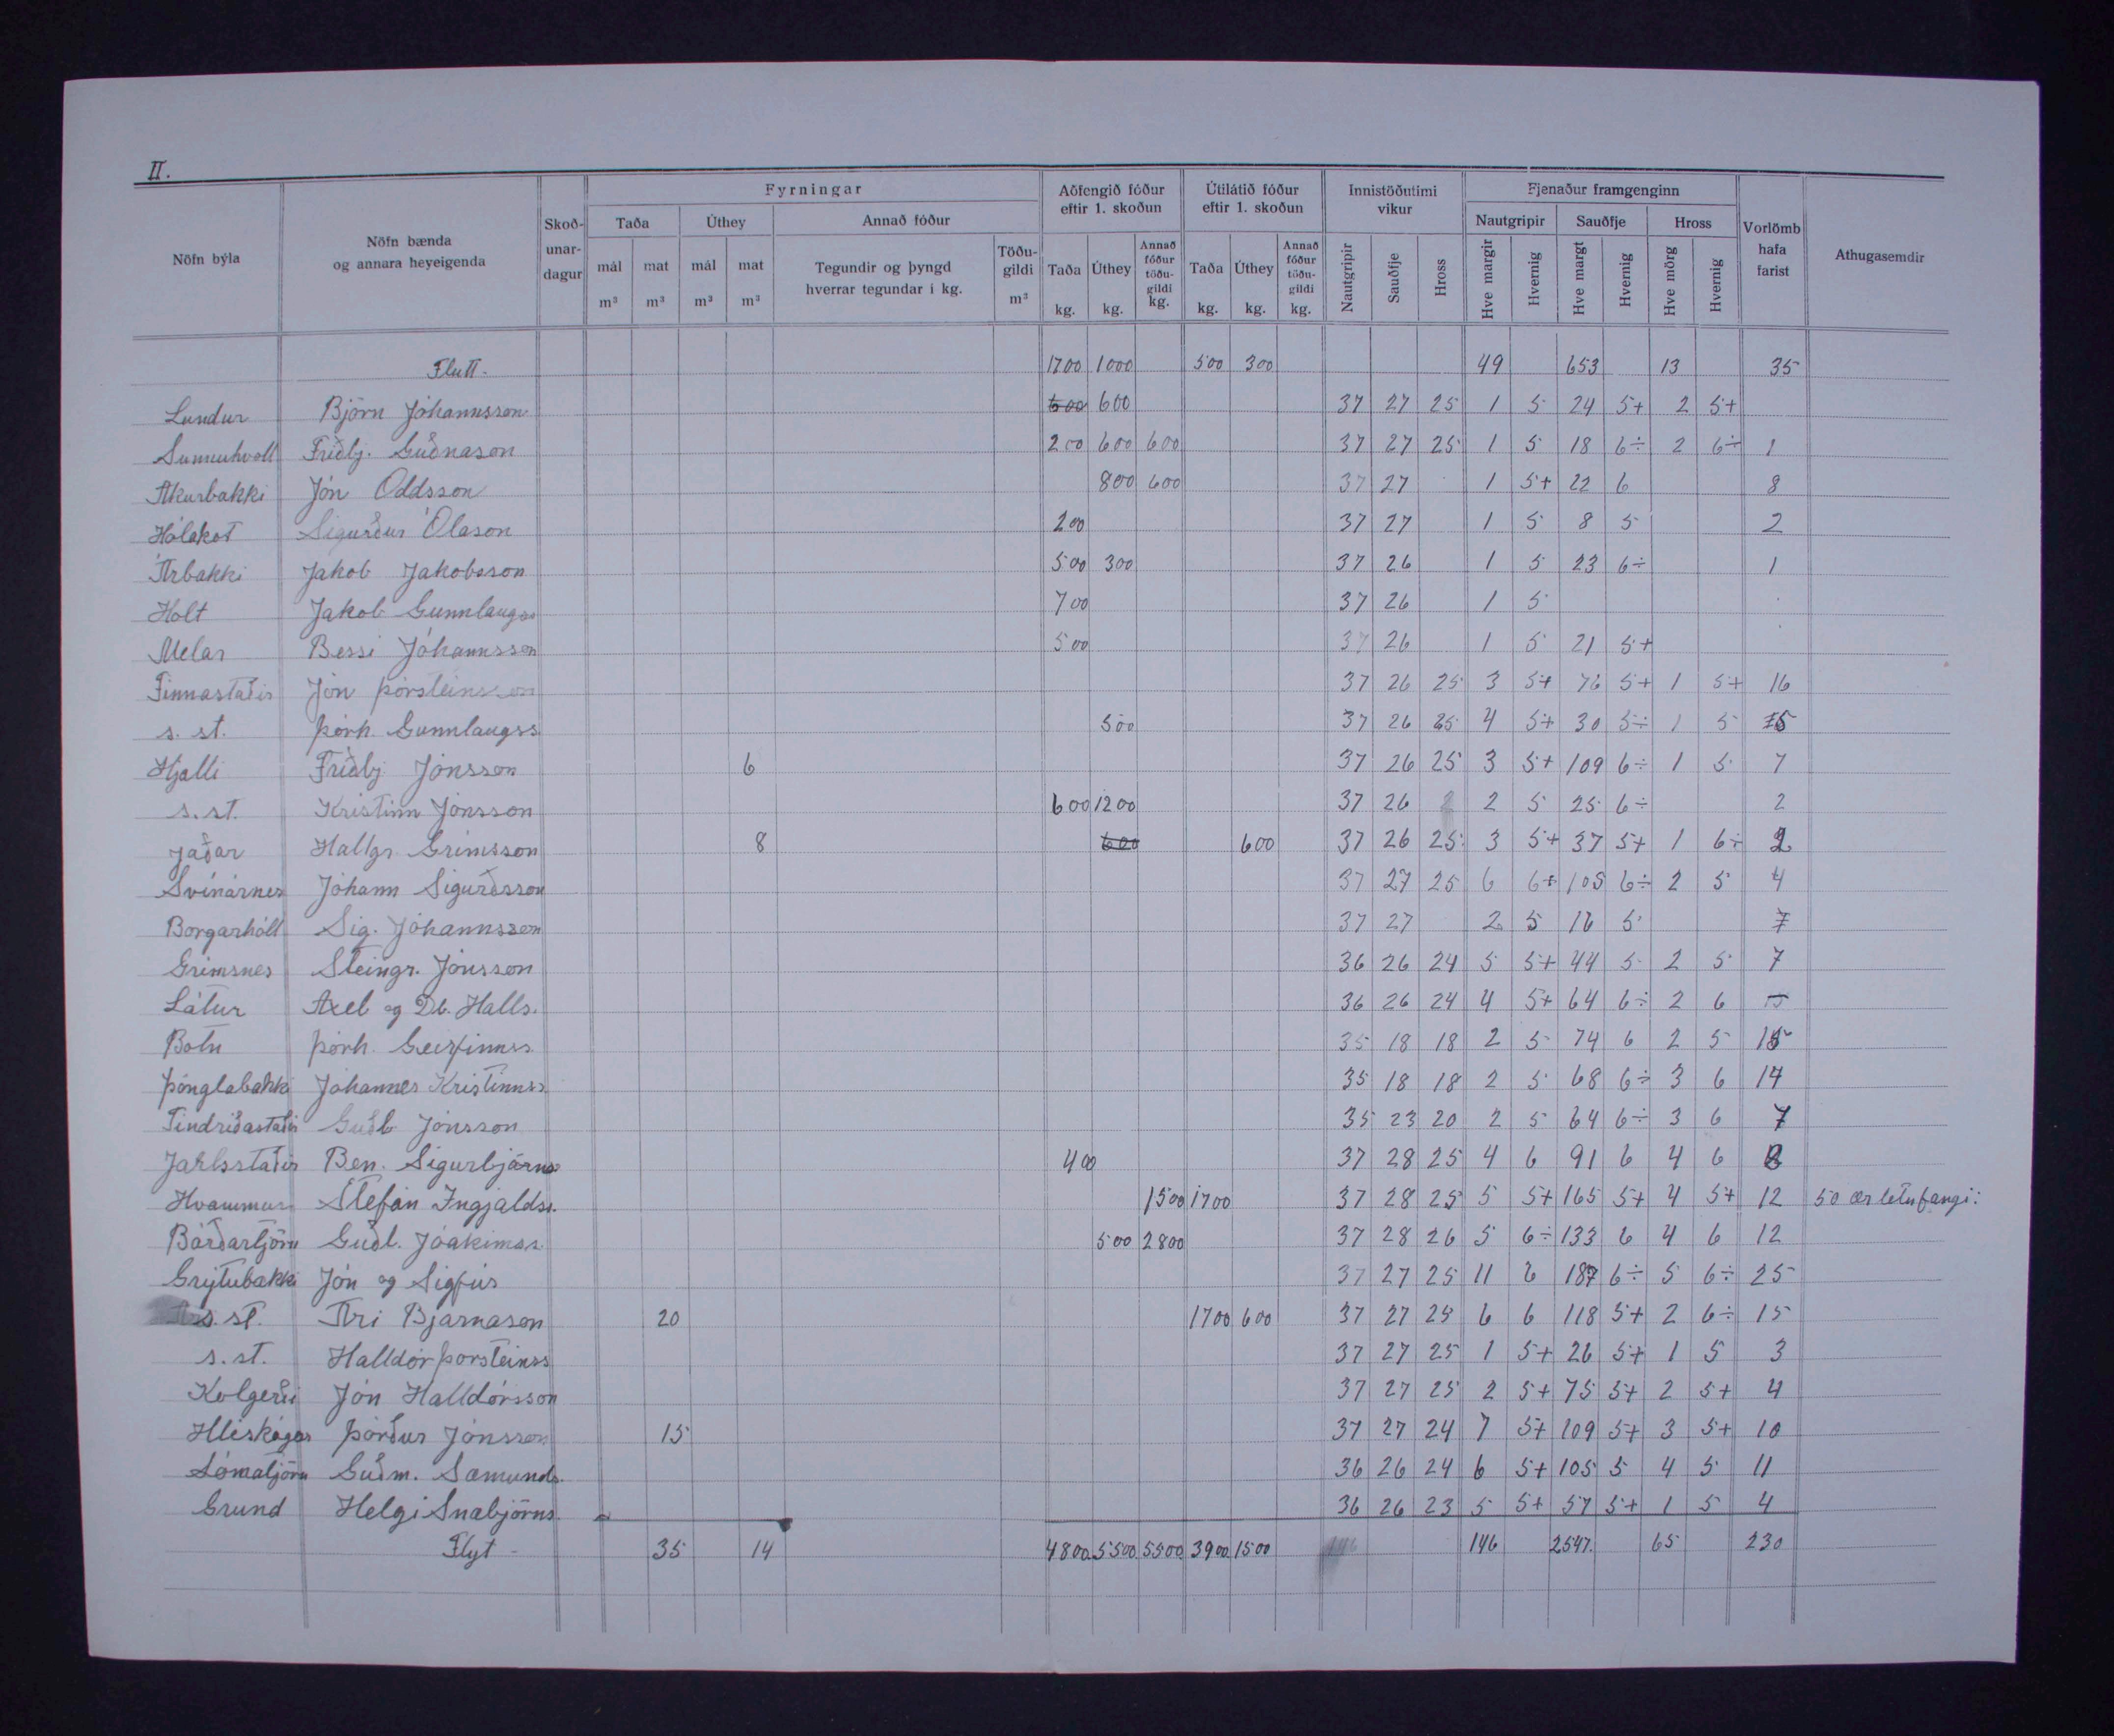 II.
Nöfn býla
Nöfn bænda og annara heyeigenda
Skoð-unar-dagur
Fyrningar
Taða
mál m³
mat m³
Úthey
mál m³
mat m³
Annað fóður
Tegundir og þyngd hverrar tegundar í kg.
Töðu-gildi m³
Aðfengið fóður eftir 1. skoðun
Taða kg.
Úthey kg.
Annað fóður töðu-gildi kg.
Útilátið fóður eftir 1. skoðun
Taða kg.
Úthey kg.
Annað fóður töðu-gildi kg.
Innistöðutími vikur
Nautgripir
Sauðfje
Hross
Fjenaður framgenginn
Nautgripir
Hve margir
Hvernig
Sauðfje
Hve margt
Hvernig
Hross
Hve mörg
Hvernig
Vorlömb hafa farist
Athugasemdir
Flutt. 1700 1000 500 300 49 653 13 35
Lundur Björn Jóhannsson 600 600 37 27 25 1 5 24 5+ 2 5+
Sunnuhvoll Friðbj. Guðnason 200 600 600 37 27 25 1 5 18 6÷ 2 6÷ 1
Akurbakki Jón Oddsson 800 600 37 27 1 5+ 22 6 8
Hólakot Sigurður Ólason 200 37 27 1 5 8 5 2
Árbakki Jakob Jakobsson 500 300 37 26 1 5 23 6÷ 1
Holt Jakob Gunnlaugss 700 37 26 1 5
Melar Bessi Jóhannsson 500 37 26 1 5 21 5+
Finnastaðir Jón Þórsteinsson 37 26 25 3 5+ 76 5+ 1 5+ 16
s. st. Þórh. Gunnlaugss. 500 37 26 25 4 5+ 30 5÷ 1 5 5
Hjalli Friðbj Jónsson 6 37 26 25 3 5+ 109 6÷ 1 5 7
s. st. Kristinn Jónsson 600 1200 37 26 2 5 25 6÷ 2
Jaðar Hallgr. Grímsson 8 600 600 37 26 25 3 5+ 37 5+ 1 6÷ 2
Svínárnes Jóhann Sigurðsson 37 27 25 6 6÷ 105 6÷ 2 5 4
Borgarhóll Sig. Jóhannsson 37 27 2 5 16 5 7
Grímsnes Steingr. Jónsson 36 26 24 5 5+ 44 5 2 5 7
Látur Axel og Db. Halls. 36 26 24 4 5+ 64 6÷ 2 6
Botn Þórh. Geirfinnss. 35 18 18 2 5 74 6 2 5 15
Þönglabakki Jóhannes Kristinnss. 35 18 18 2 5 68 6÷ 3 6 14
Tindriðastaðir Guðb Jónsson 35 23 20 2 5 64 6÷ 3 6 7
Jarlsstaðir Ben. Sigurbjörns 400 37 28 25 4 6 91 6 4 6 8
Hvammur Stefán Ingjaldss. 1500 1700 37 28 25 5 5+ 165 5+ 4 5+ 12 50 ær létu fangi:
Bárðartjörn Guðl. Jóakimss. 500 2800 37 28 26 5 6÷ 133 6 4 6 12
Grýtubakki Jón og Sigfús 37 27 25 11 6 187 6÷ 5 6÷ 25
s. st. Ari Bjarnason 20 1700 600 37 27 25 6 6 118 5+ 2 6÷ 15
s. st. Halldór Þorsteinss 37 27 25 1 5+ 26 5+ 1 5 3
Kolgerði Jón Halldórsson 37 27 25 2 5+ 75 5+ 2 5+ 4
Hléskógar Þórður Jónsson 15 37 27 24 7 5+ 109 5+ 3 5+ 10
Lómatjörn Guðm. Sæmunds. 36 26 24 6 5+ 105 5 4 5 11
Grund Helgi Snæbjörns. 36 26 23 5 5+ 57 5+ 1 5 4
Flyt - 35 14 4800 5500 5500 3900 1500 146 2547. 65 230